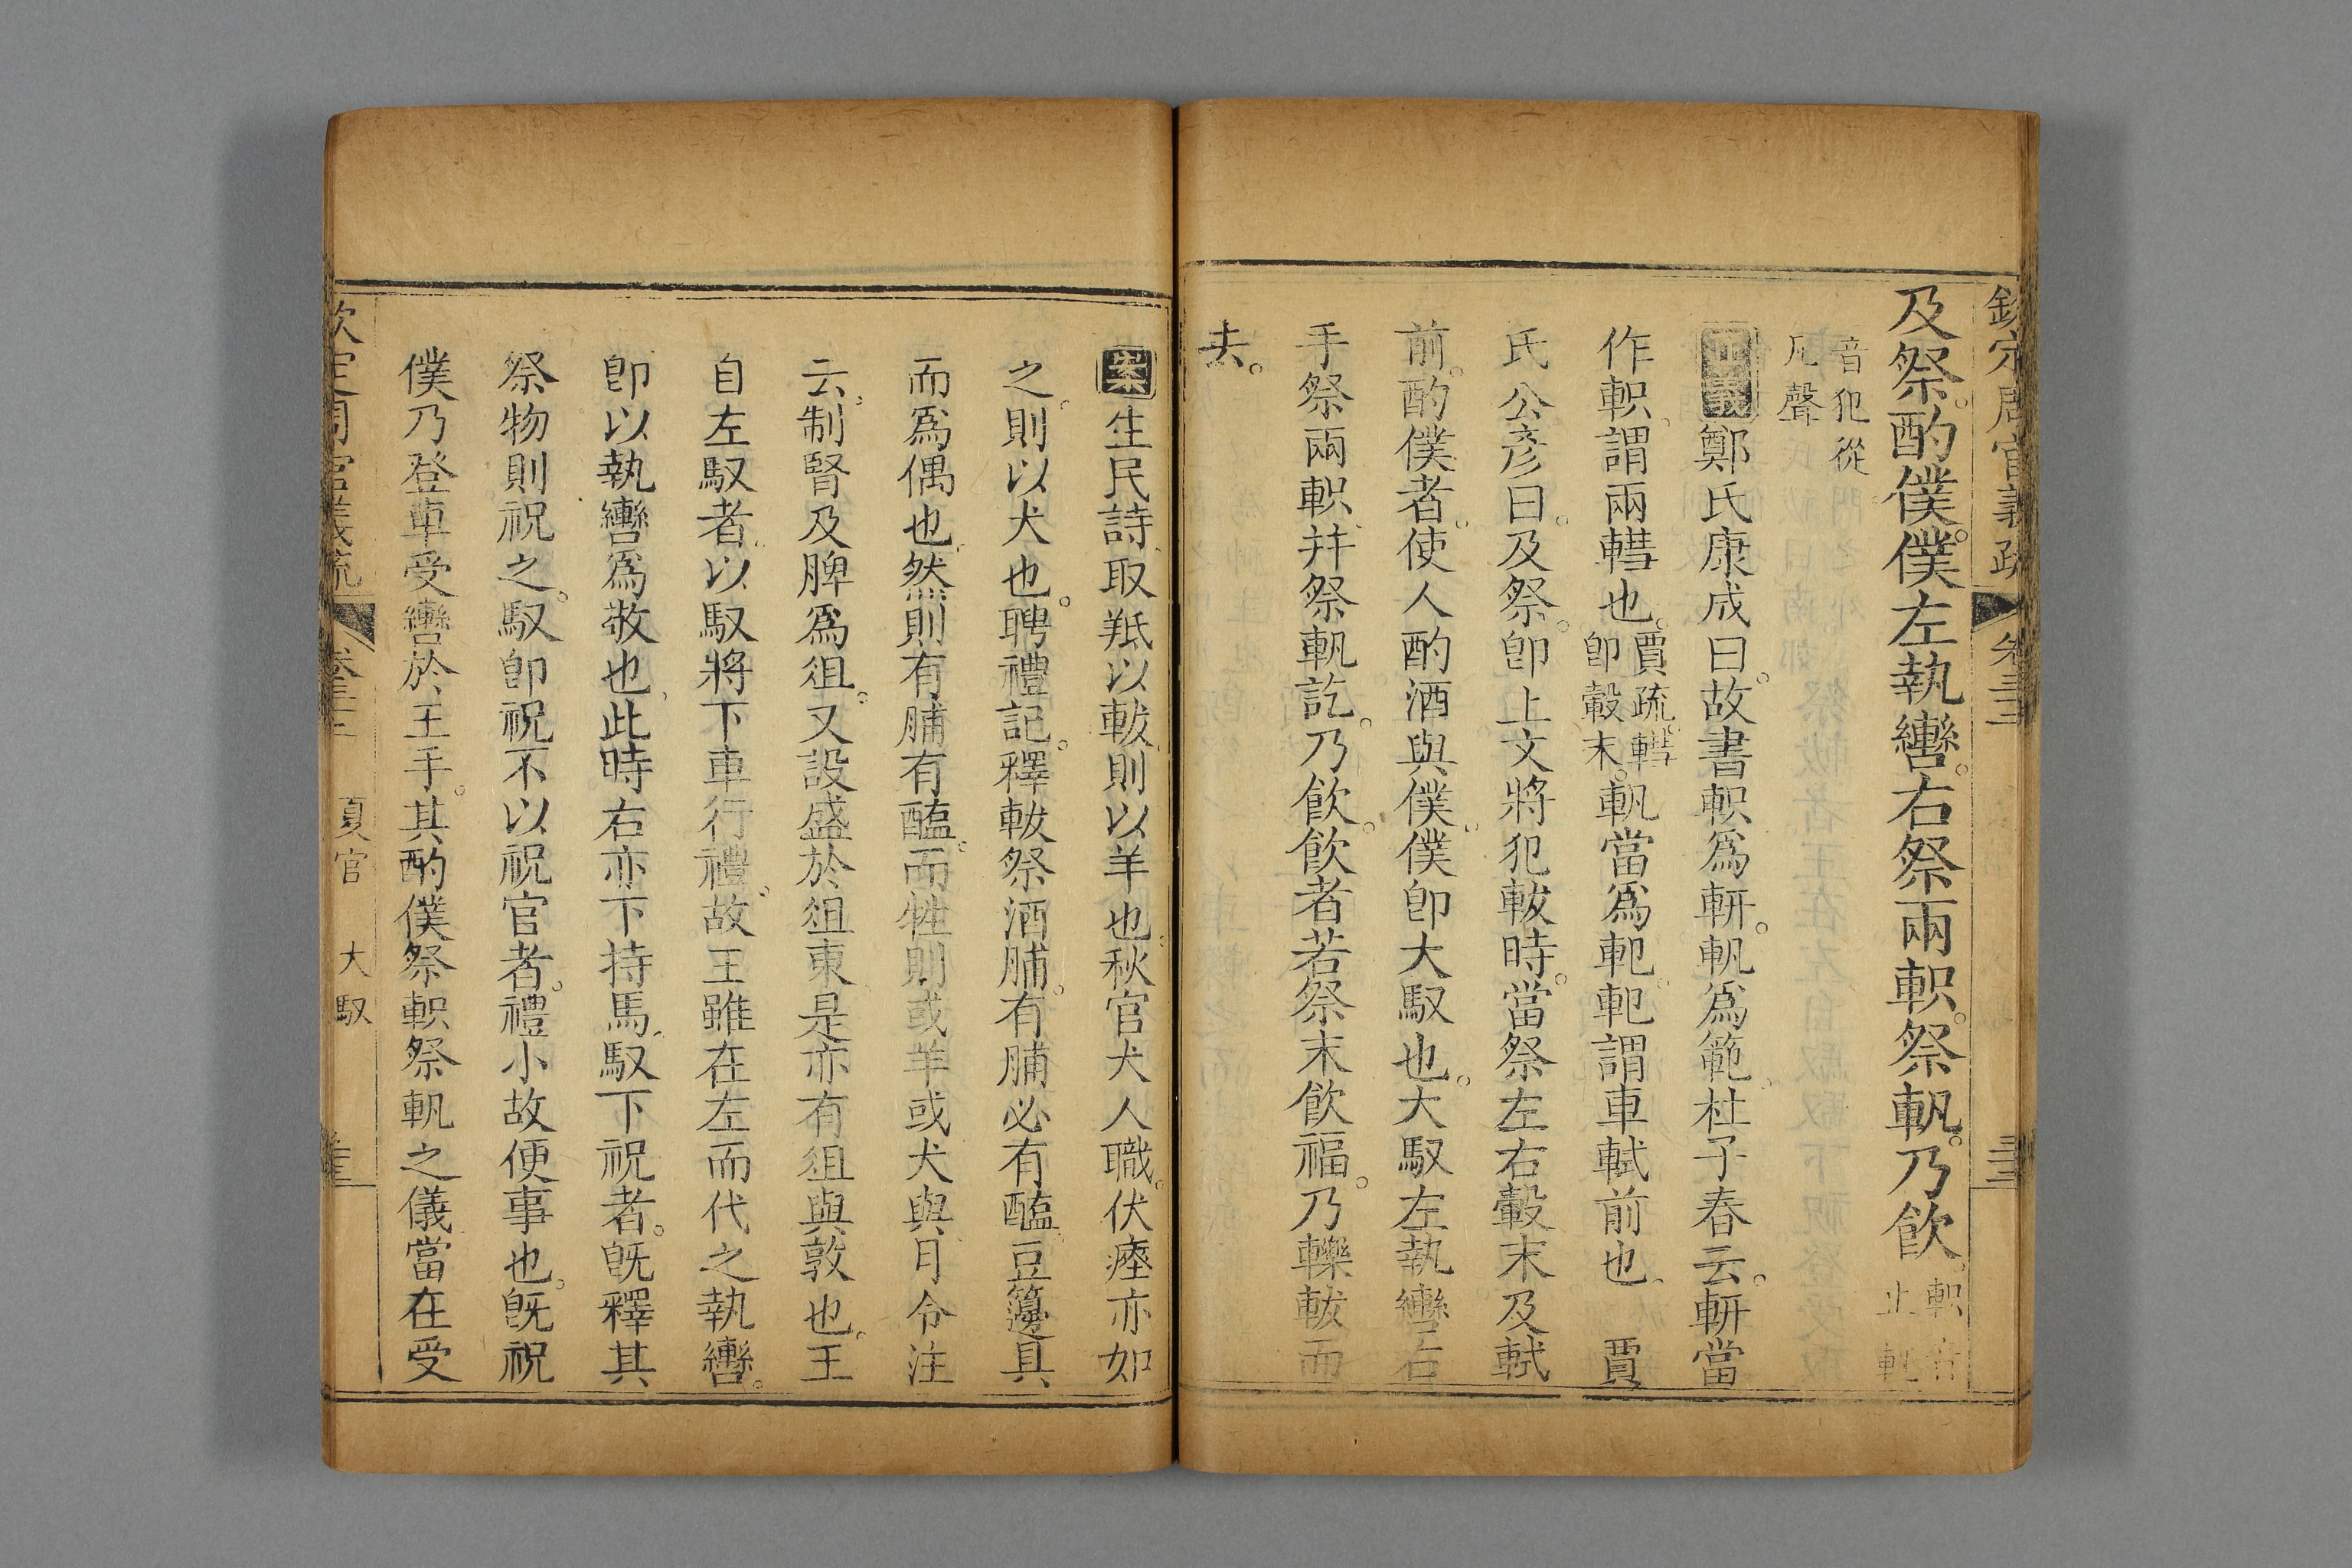 欽定周官義疏 卷三十二
及祭。酌僕。僕左執轡。右祭兩軹。祭軓。乃飲。軹音止軓
音犯從
凡聲
正義鄭氏康成曰。故書軹爲軿。軓爲範。杜子春云。軿當
作軹。謂兩轊也。賈疏。轊即轂末。軓當爲軋。軋謂車軾前也。 賈
氏公彥曰。及祭。卽上文將犯軷時。當祭左右轂末及軾
前。酌僕者。使人酌酒與僕。僕卽大馭也。大馭左執轡。右
手祭兩軹。并祭軓訖。乃飲。飲者若祭末飲福。乃轢軷而
去。
案生民詩。取羝以軷。則以羊也。秋官犬人職。伏瘞亦如
之。則以犬也。聘禮記。釋軷祭酒脯。有脯必有醢。豆籩具
而爲偶也。然則有脯有醢。而牲則或羊或犬與。月令注
云。制腎及脾爲俎。又設盛於俎東。是亦有俎與敦也。王
自左馭者。以馭將下車行禮。故王雖在左而代之執轡。
卽以執轡爲敬也。此時右亦下持馬。馭下祝者。旣釋其
祭物則祝之。馭卽祝不以祝官者。禮小故便事也。旣祝
僕乃登車受轡於王手。其酌僕祭軹祭軓之儀當在受
欽定周官義疏 夏官 大馭